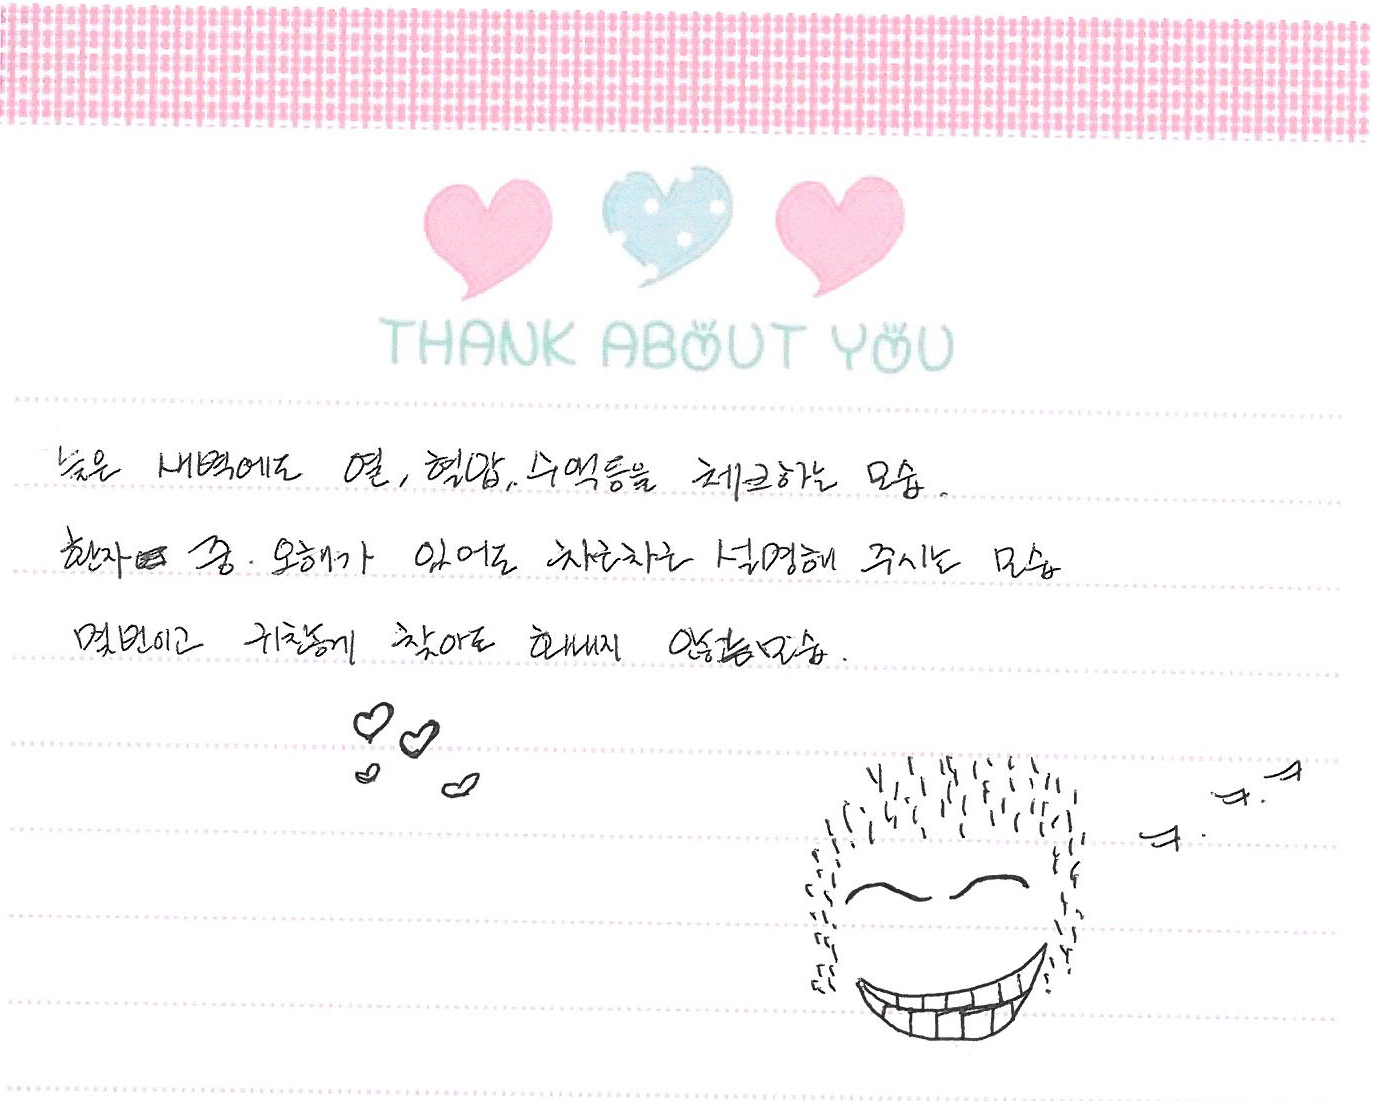 THANK ABOUT YOU
늦은 새벽에도 열, 혈압, 수액등을 체크하는 모습.
환자 중. 오해가 있어도 차근차근 설명해 주시는 모습
몇번이고 귀찮게 찾아도 화내지 않는모습.
ㅋ.
ㅋ.
ㅋ